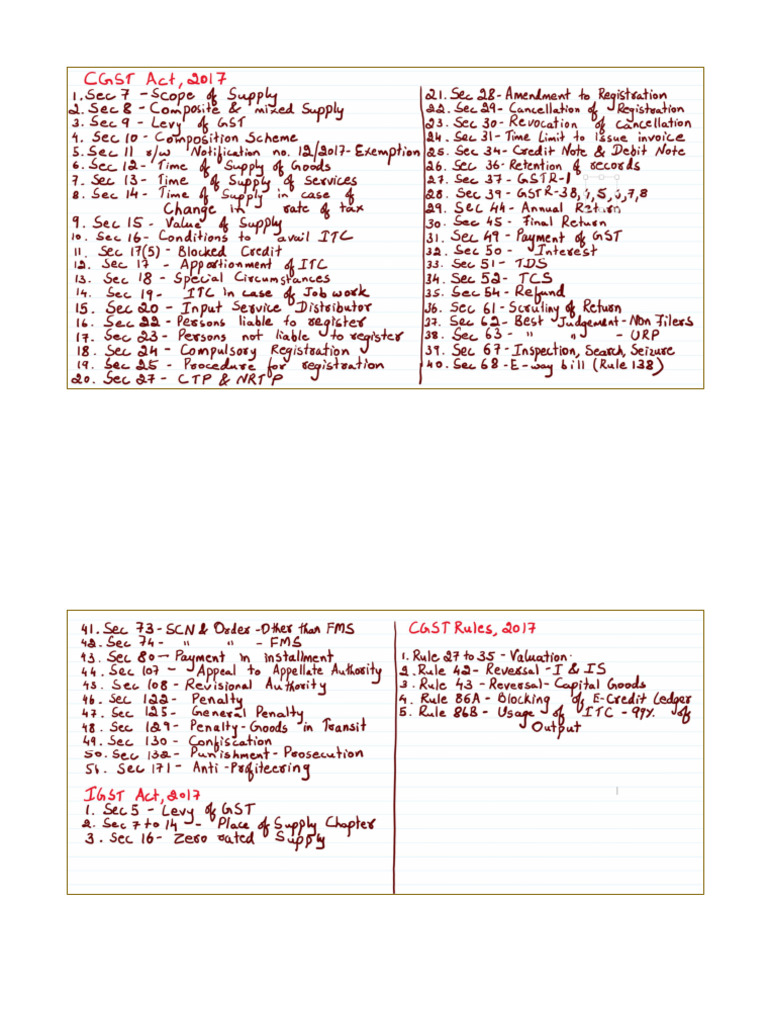 CGST Act, 2017
1. Sec 7 - Scope of Supply
2. Sec 8 - Composite & mixed Supply
3. Sec 9 - Levy of GST
4. Sec 10 - Composition Scheme
5. Sec 11 r/w Notification no. 12/2017 - Exemption
6. Sec 12 - Time of Supply of Goods
7. Sec 13 - Time of Supply of Services
8. Sec 14 - Time of Supply in case of
Change in rate of tax
9. Sec 15 - Value of Supply
10. Sec 16 - Conditions to avail ITC
11. Sec 17(5) - Blocked Credit
12. Sec 17 - Apportionment of ITC
13. Sec 18 - Special Circumstances
14. Sec 19 - ITC in case of Job work
15. Sec 20 - Input Service Distributor
16. Sec 22 - Persons liable to register
17. Sec 23 - Persons not liable to register
18. Sec 24 - Compulsory Registration
19. Sec 25 - Procedure for registration
20. Sec 27 - CTP & NRTP
21. Sec 28 - Amendment to Registration
22. Sec 29 - Cancellation of Registration
23. Sec 30 - Revocation of cancellation
24. Sec 31 - Time Limit to issue invoice
25. Sec 34 - Credit Note & Debit Note
26. Sec 36 - Retention of records
27. Sec 37 - GSTR-1
28. Sec 39 - GSTR-3B, 4, 5, 6, 7, 8
29. Sec 44 - Annual Return
30. Sec 45 - Final Return
31. Sec 49 - Payment of GST
32. Sec 50 - Interest
33. Sec 51 - TDS
34. Sec 52 - TCS
35. Sec 54 - Refund
36. Sec 61 - Scrutiny of Return
37. Sec 62 - Best Judgement - Non Filers
38. Sec 63 - " " - URP
39. Sec 67 - Inspection, Search, Seizure
40. Sec 68 - E-way bill (Rule 138)
41. Sec 73 - SCN & Order - Other than FMS
42. Sec 74 - " " - FMS
43. Sec 80 - Payment in installment
44. Sec 107 - Appeal to Appellate Authority
45. Sec 108 - Revisional Authority
46. Sec 122 - Penalty
47. Sec 125 - General Penalty
48. Sec 129 - Penalty - Goods in Transit
49. Sec 130 - Confiscation
50. Sec 132 - Punishment - Prosecution
51. Sec 171 - Anti-Profiteering
IGST Act, 2017
1. Sec 5 - Levy of GST
2. Sec 7 to 14 - Place of Supply Chapter
3. Sec 16 - Zero rated Supply
CGST Rules, 2017
1. Rule 27 to 35 - Valuation
2. Rule 42 - Reversal - I & IS
3. Rule 43 - Reversal - Capital Goods
4. Rule 86A - Blocking of E-Credit Ledger
5. Rule 86B - Usage of ITC - 99% of
Output